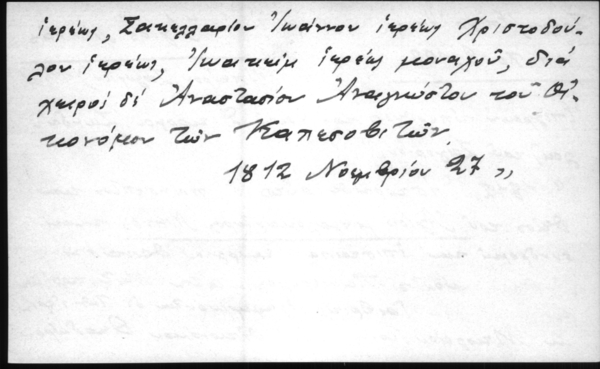 ἱερέως, Σακελλαρίου Ἰωάννου ἱερέως Χριστοδού-
λου ἱερέως, Ἰωακεὶμ ἱερέως μοναχοῦ, διά
χειρός δέ Ἀναστασίου Ἀναγνώστου τοῦ Οἰ-
κονόμου τῶν Καπεσοβιτῶν
1812 Νοεμβρίου 27 ,,